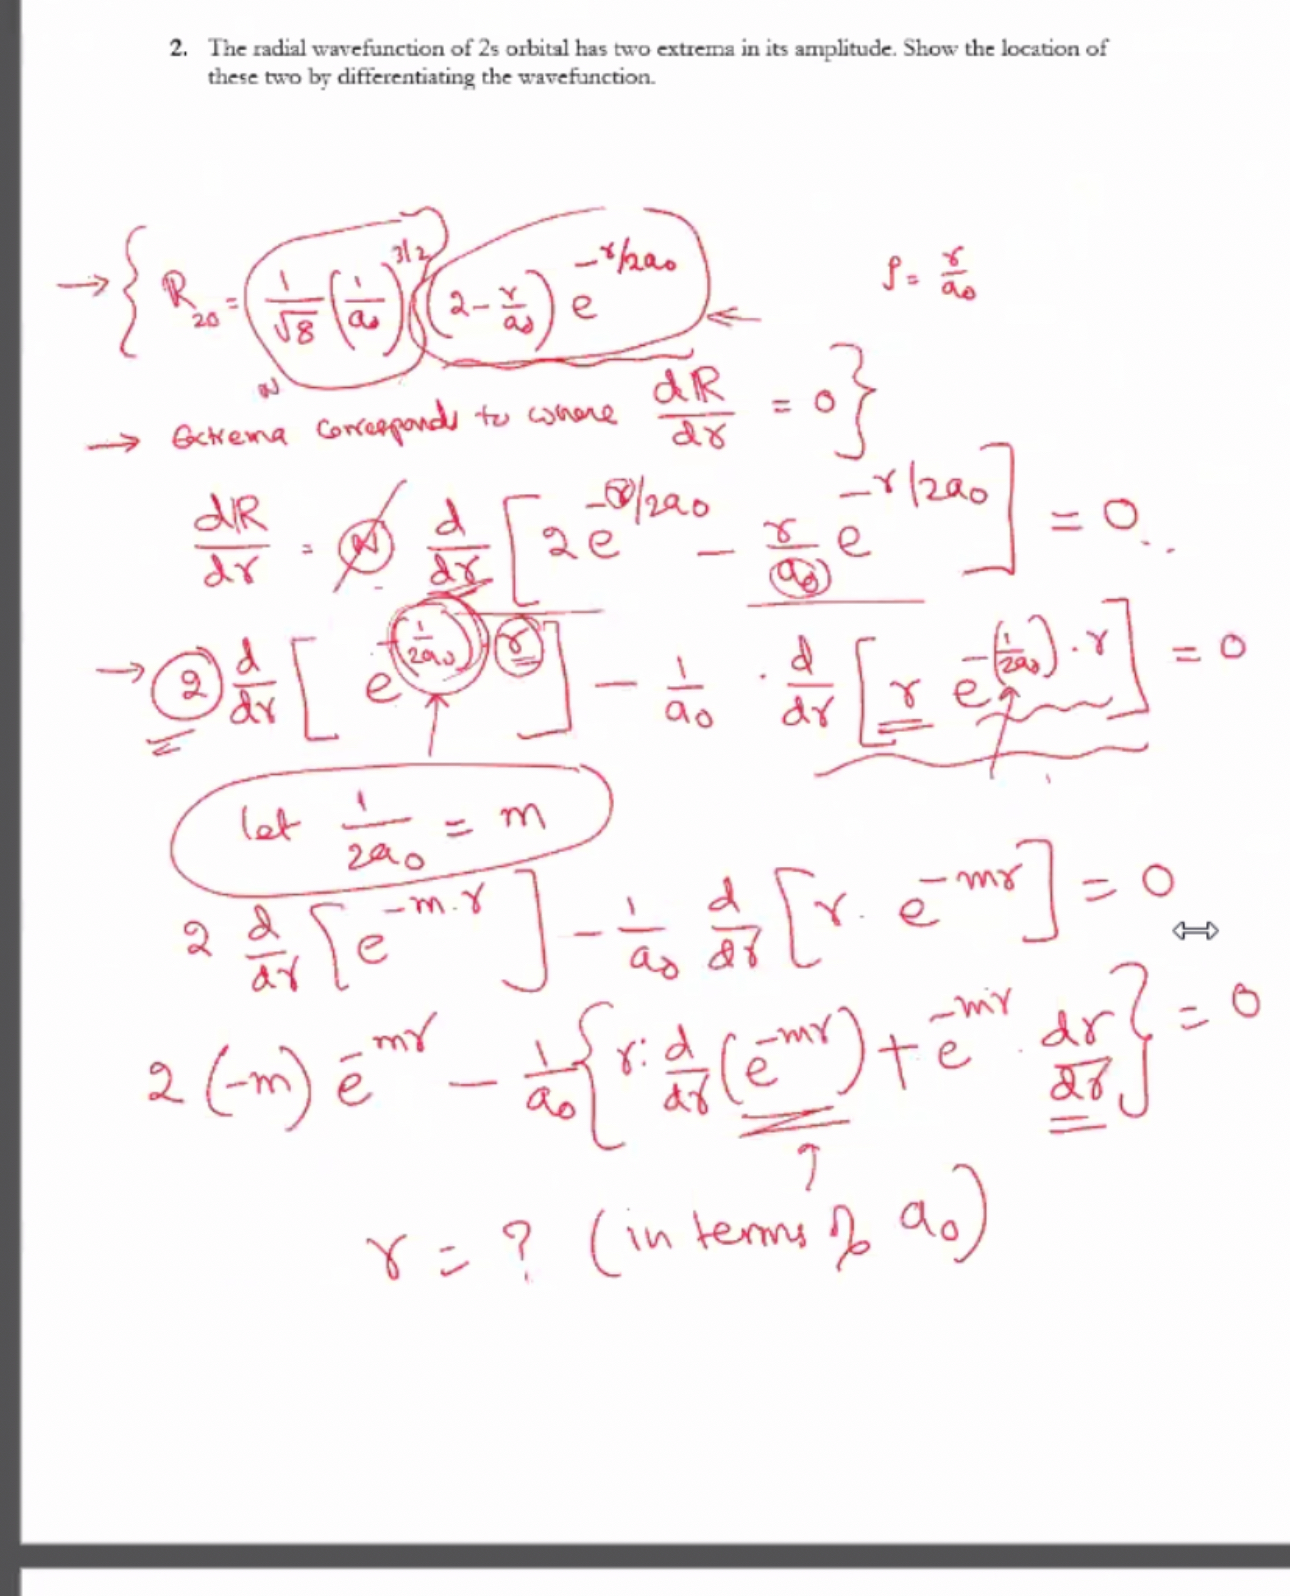 2. The radial wavefunction of 2s orbital has two extrema in its amplitude. Show the location of
these two by differentiating the wavefunction.
→ { R₂₀ = (1/√8 (1/a₀)^3/2) (2 - r/a₀) e^-r/2a₀ ←
ρ = r/a₀
N
→ Extrema corresponds to where dR/dr = 0 }
dR/dr = N d/dr [ 2e^-r/2a₀ - r/a₀ e^-r/2a₀ ] = 0
→ 2 d/dr [ e^-(1/2a₀) r ] - 1/a₀ · d/dr [ r e^-(1/2a₀)·r ] = 0
let 1/2a₀ = m
2 d/dr [ e^-m.r ] - 1/a₀ d/dr [ r. e^-mr ] = 0
2 (-m) e^-mr - 1/a₀ { r. d/dr (e^-mr) + e^-mr . dr/dr } = 0
r = ? (in terms of a₀)